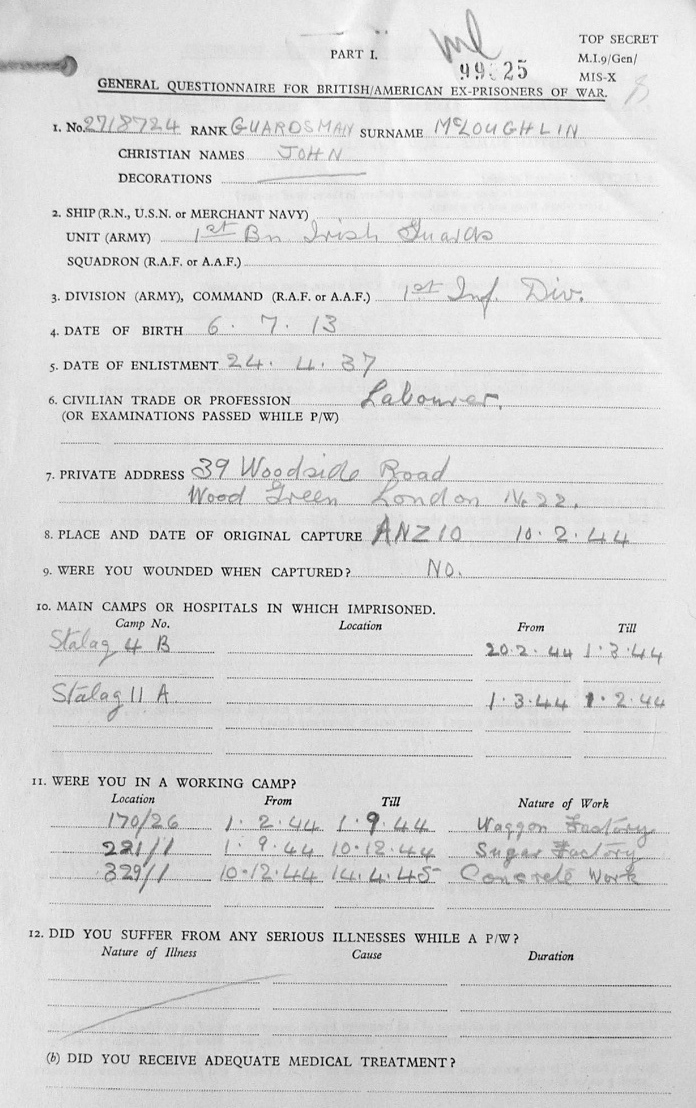 PART I.
TOP SECRET
M.I.9/Gen/
MIS-X
GENERAL QUESTIONNAIRE FOR BRITISH/AMERICAN EX-PRISONERS OF WAR.
1. No. 2718724 RANK GUARDSMAN SURNAME McLOUGHLIN
CHRISTIAN NAMES JOHN
DECORATIONS
2. SHIP (R.N., U.S.N. or MERCHANT NAVY)
UNIT (ARMY) 1st Bn Irish Guards
SQUADRON (R.A.F. or A.A.F.)
3. DIVISION (ARMY), COMMAND (R.A.F. or A.A.F.) 1st Inf. Div.
4. DATE OF BIRTH 6. 7. 13
5. DATE OF ENLISTMENT 24. 4. 37
6. CIVILIAN TRADE OR PROFESSION Labourer.
(OR EXAMINATIONS PASSED WHILE P/W)
7. PRIVATE ADDRESS 39 Woodside Road
Wood Green London N. 22.
8. PLACE AND DATE OF ORIGINAL CAPTURE ANZIO 10. 2. 44
9. WERE YOU WOUNDED WHEN CAPTURED? NO.
10. MAIN CAMPS OR HOSPITALS IN WHICH IMPRISONED.
Camp No. Location From Till
Stalag 4 B 20.2.44 1.3.44
Stalag 11 A 1.3.44 1.2.44
11. WERE YOU IN A WORKING CAMP?
Location From Till Nature of Work
170/26 1. 2. 44 1. 9. 44 Waggon Factory
221/1 1. 9. 44 10.12.44 Sugar Factory
329/1 10.12.44 14.4.45 Concrete Work
12. DID YOU SUFFER FROM ANY SERIOUS ILLNESSES WHILE A P/W?
Nature of Illness Cause Duration
(b) DID YOU RECEIVE ADEQUATE MEDICAL TREATMENT?